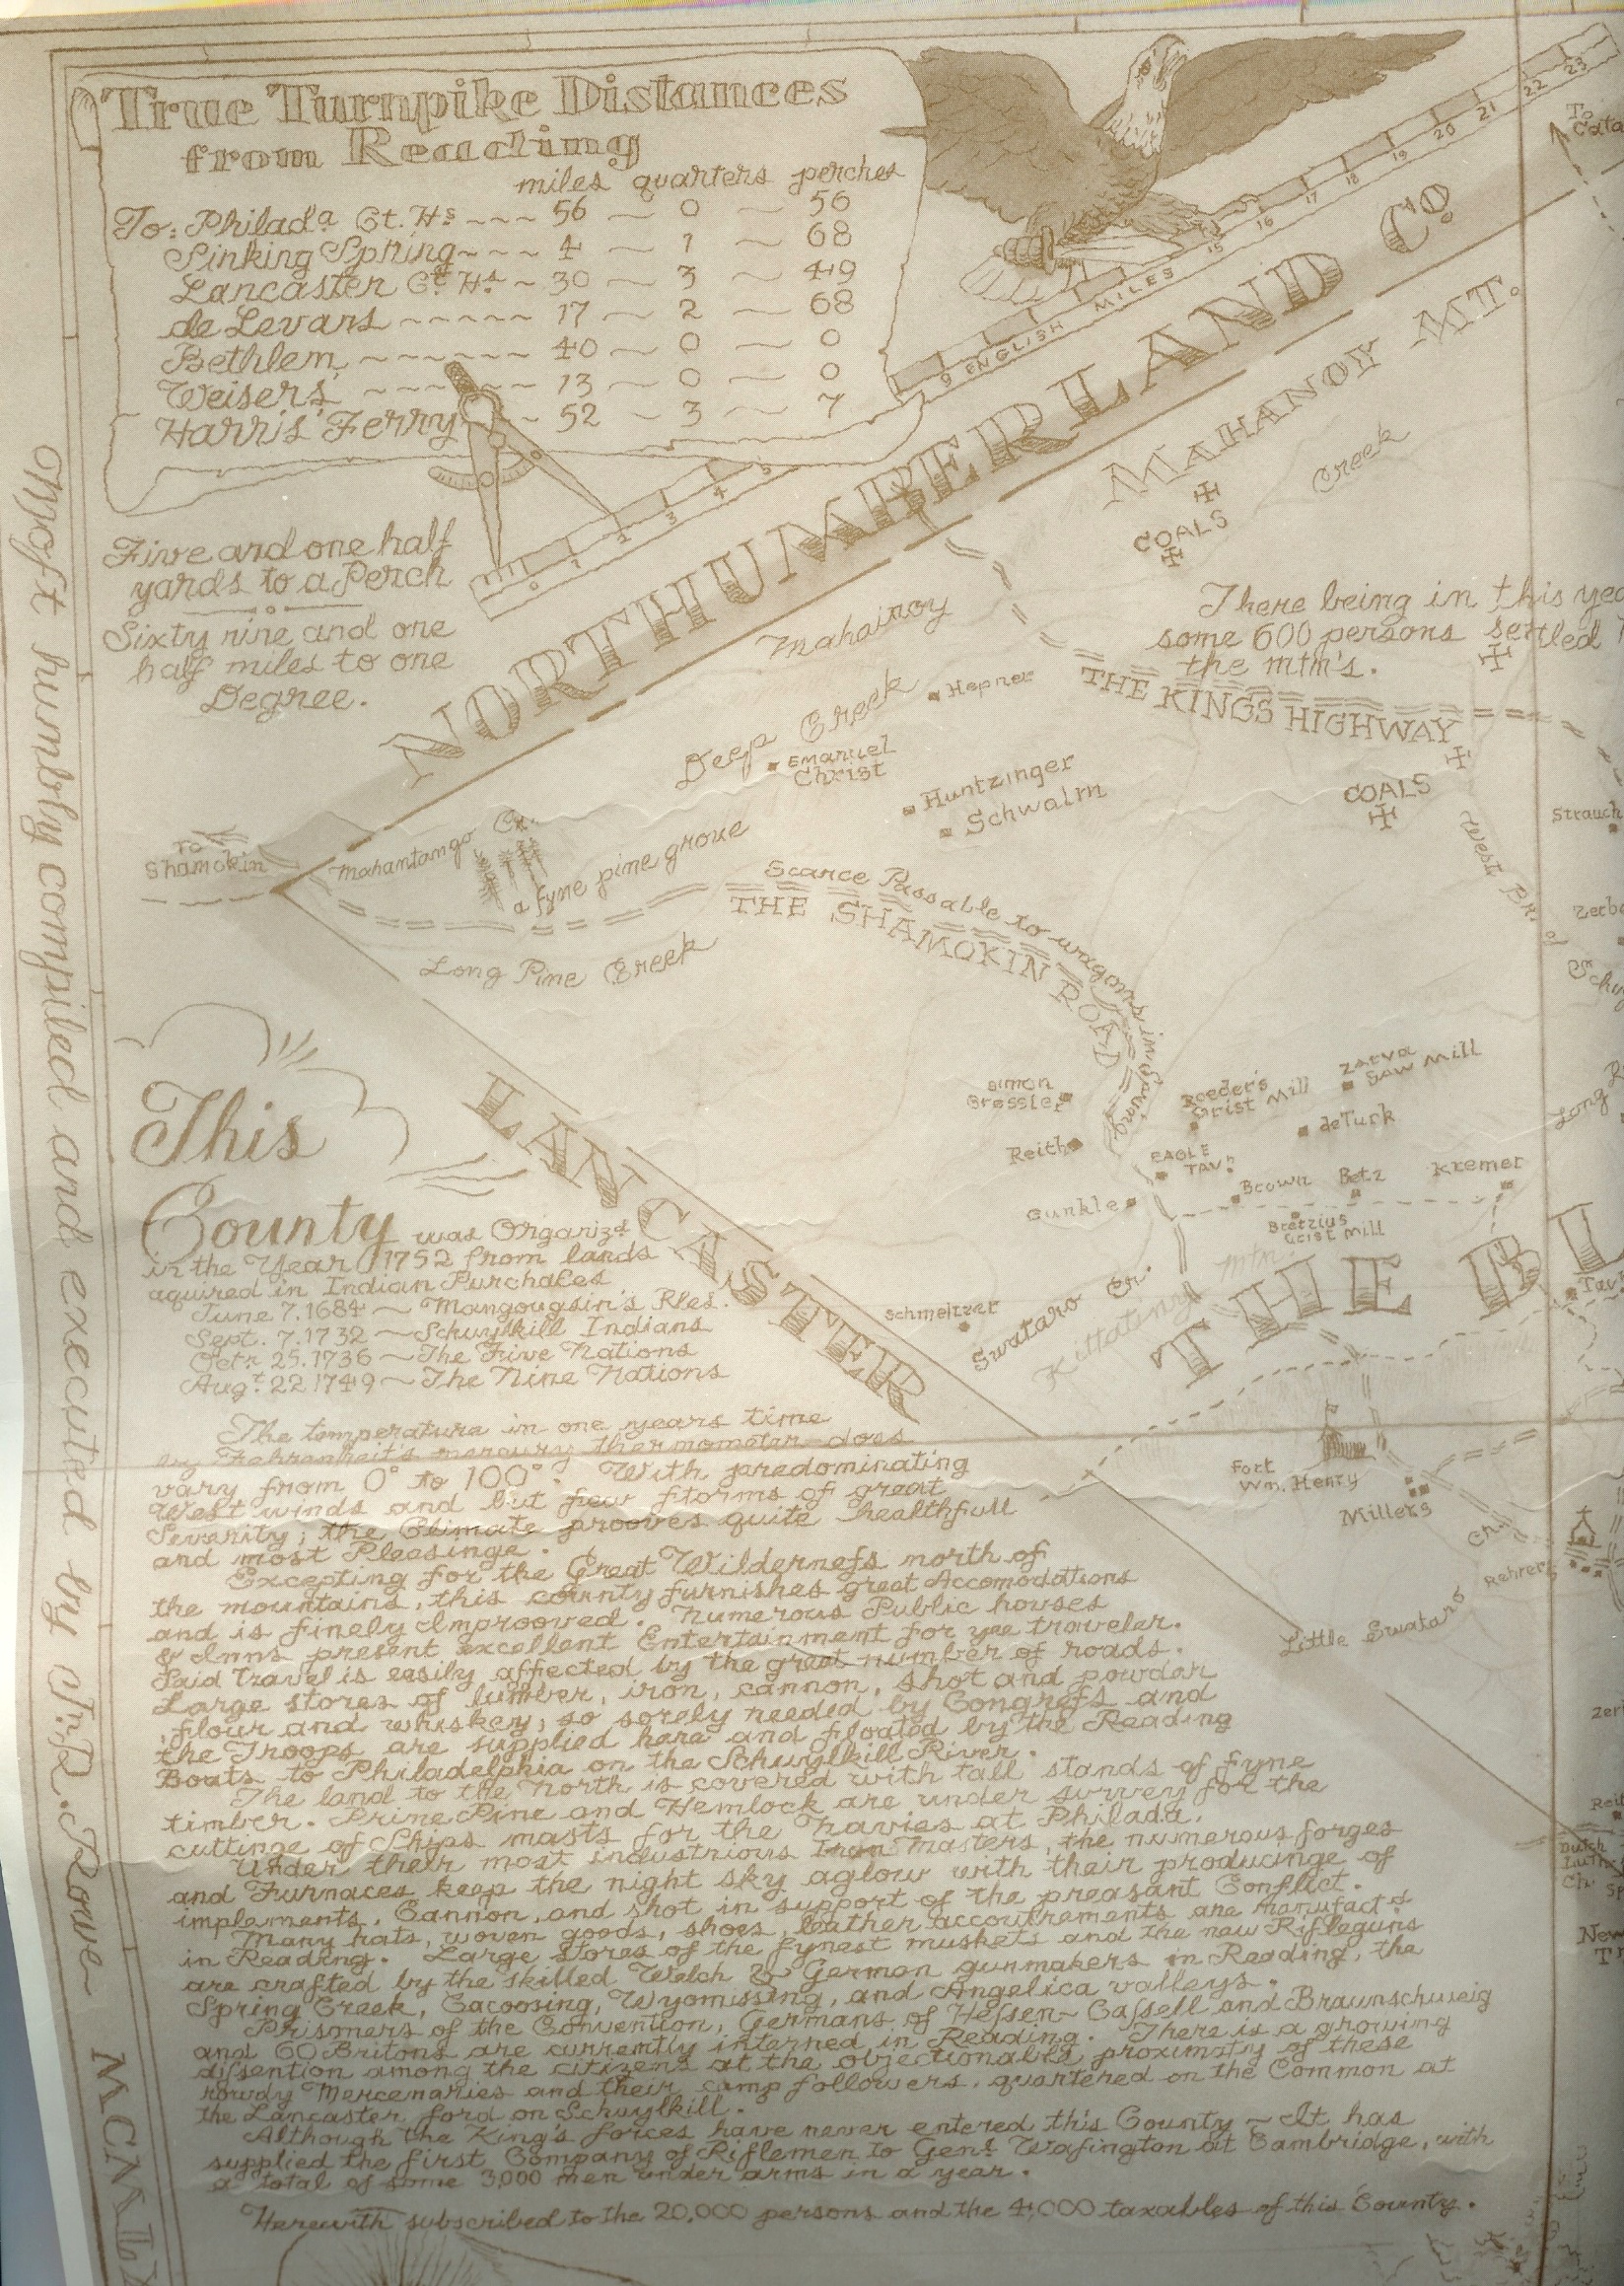 True Turnpike Distances
from Reading
miles quarters perches
To: Philada Ct. Hs --- 56 — 0 — 56
Sinking Spring --- 4 — 1 — 68
Lancaster Ct. Hs. - 30 — 3 — 49
de Levans ----- 17 — 2 — 68
Bethlem ------ 40 — 0 — 0
Weisers' ------ 13 — 0 — 0
Harris' Ferry - 52 — 3 — 7
Five and one half
yards to a Perch
Sixty nine and one
half miles to one
Degree.
0 1 2 3 4 5
9 ENGLISH MILES 15 16 17 18 19 20 21 22 23
To
Cata
NORTHUMBERLAND Co.
MAHANOY MT.
Creek
COALS
There being in this yea
some 600 persons settled
the mtm's.
THE KINGS HIGHWAY
Mahainoy
Deep Creek
Hepner
Emanuel
Christ
Huntzinger
Schwalm
COALS
West Br. of
Schu
Strauch
Zerb
To
Shamokin
Mahantango Cr.
a fyne pine grove
Scarce Passable to wagons in Saving
THE SHAMOKIN ROAD
Long Pine Creek
Simon
Gressler
Reith
Gunkle
Roeder's
Grist Mill
Zerva
Saw Mill
deTurk
EAGLE
TAVn.
Brown
Betz
Kremer
Bretzius
Grist Mill
Long R
Schmeltzer
Swataro Cr.
Kittatiny Mtn.
THE BL
Tav.
LANCASTER
Fort
Wm. Henry
Millers
Ch.
Rehrers
Little Swataro
Zer
Rei
Dutch
Luth.
Ch.
Sp
New
T
This
County was Organizd
in the Year 1752 from lands
aquired in Indian Purchases
June 7.1684 — Mangougsin's Rles.
Sept. 7.1732 — Schuylkill Indians
Octr. 25.1736 — The Five Nations
Augt. 22 1749 — The Nine Nations
The temperature in one years time
by Fahrenheit's mercury thermometer does
vary from 0° to 100°. With predominating
West winds and but few ſtorms of great
Severity; the Climate prooves quite healthfull
and most Pleasinge.
Excepting for the Great Wilderneſs north of
the mountains, this county furnishes great Accomodations
and is finely Improoved. Numerous Public houses
& Inns present excellent Entertainment for yee traveler.
Said Travel is easily affected by the great number of roads.
Large stores of lumber, iron, cannon, shot and powder
, flour and whiskey; so sorely needed by Congreſs and
the Troops are supplied here and floated by the Reading
Boats to Philadelphia on the Schuylkill River.
The land to the North is covered with tall stands of fyne
timber. Prime Pine and Hemlock are under survey for the
cuttinge of Ships masts for the Navies at Philada.
Under their most industrious Iron Masters, the numerous forges
and Furnaces keep the night sky aglow with their producinge of
implements, Cannon, and shot in support of the preasant Conflict.
Many hats, woven goods, shoes, leather accoutrements are manufactd
in Reading. Large stores of the fynest muskets and the new Rifleguns
are crafted by the skilled Welch & German gunmakers in Reading, the
Spring Creek, Cacoosing, Wyomissing, and Angelica valleys.
Prisoners of the Convention, Germans of Heſsen-Caſsell and Braunschweig
and 60 Britons are currently interned in Reading. There is a growing
diſsention among the citizens at the objectionable proximity of these
rowdy Mercenaries and their camp followers, quartered on the Common at
the Lancaster ford on Schuylkill.
Although the King's forces have never entered this County — It has
supplied the first Company of Riflemen to Genl. Waſington at Cambridge, with
a total of some 3,000 men under arms in a year.
Herewith subscribed to the 20,000 persons and the 4,000 taxables of this County.
Moſt humbly compiled and executed by J.R. Rowe